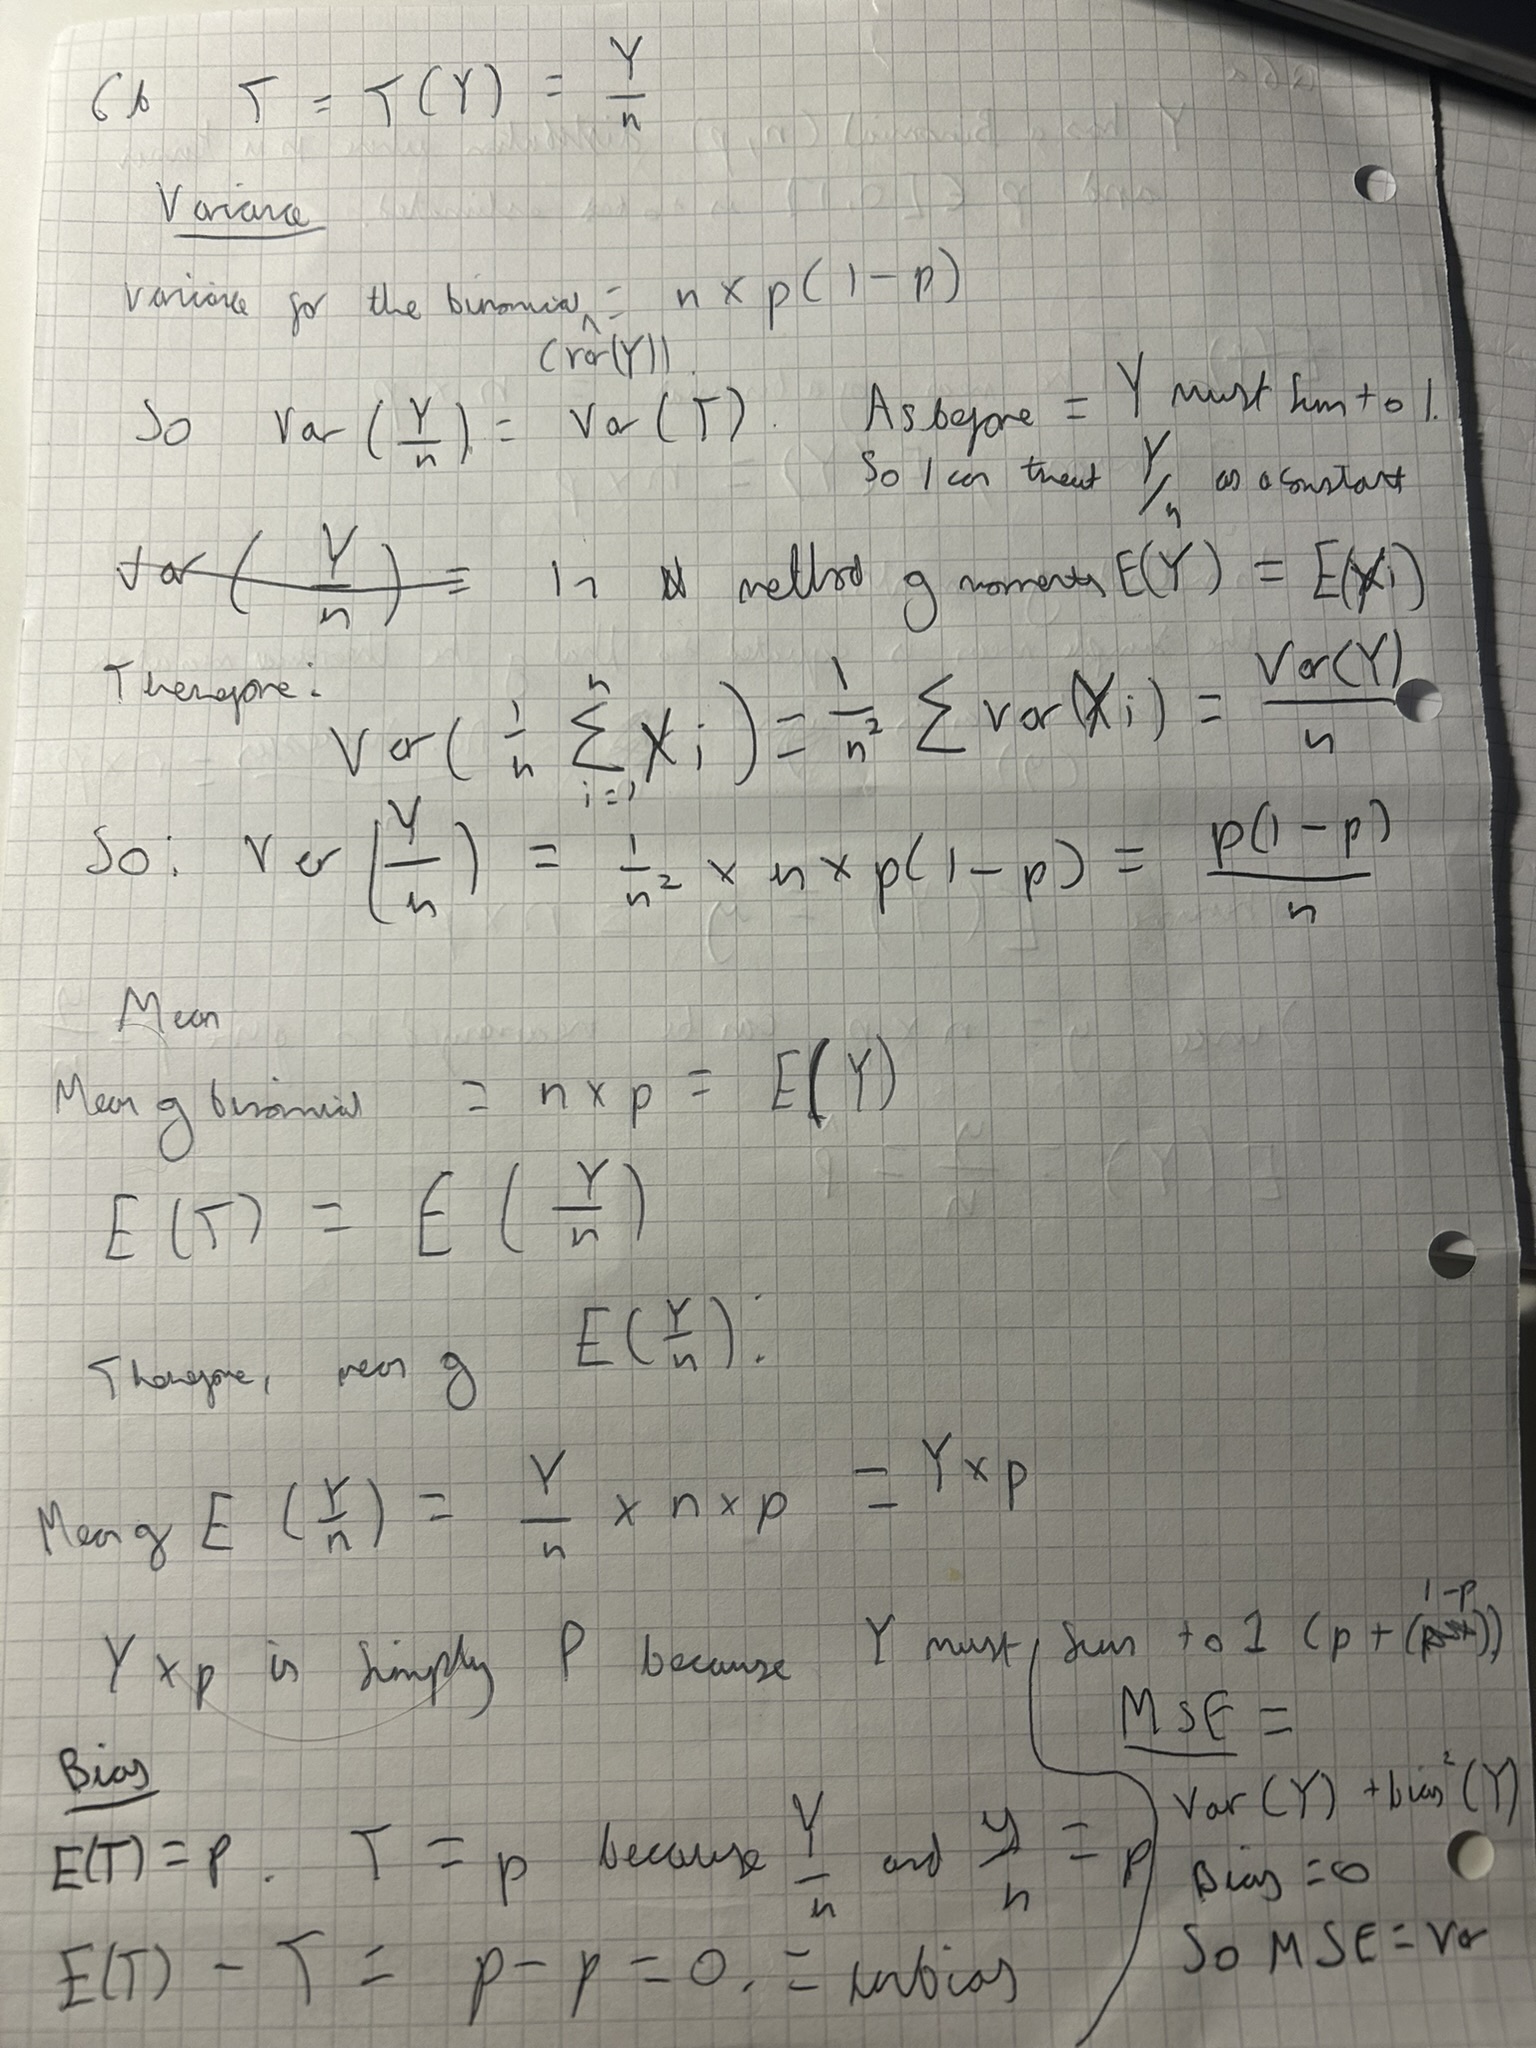 6b T = T(Y) = Y/n
Variance
Variance for the binomial = n × p(1-p)
(var(Y)).
So Var(Y/n) = Var(T). As before = Y must sum to 1.
So I can treat Y/n as a constant
Var(Y/n) = In method of moments E(Y) = E(Xi)
Therefore:
Var(1/n Σ_{i=1}^{n} Xi) = 1/n² Σ Var(Xi) = Var(Y)/n
So: Var(Y/n) = 1/n² × n × p(1-p) = p(1-p)/n
Mean
Mean of binomial = n × p = E(Y)
E(T) = E(Y/n)
Therefore, mean of E(Y/n):
Mean of E(Y/n) = Y/n × n × p = Y × p
Y × p is simply P because Y must sum to 1 (p + (1-p))
Bias
E(T) = p. T = p because Y/n and y/n = p
E(T) - T = p - p = 0. = unbias
MSE =
Var(Y) + bias²(Y)
Bias = 0
So MSE = Var